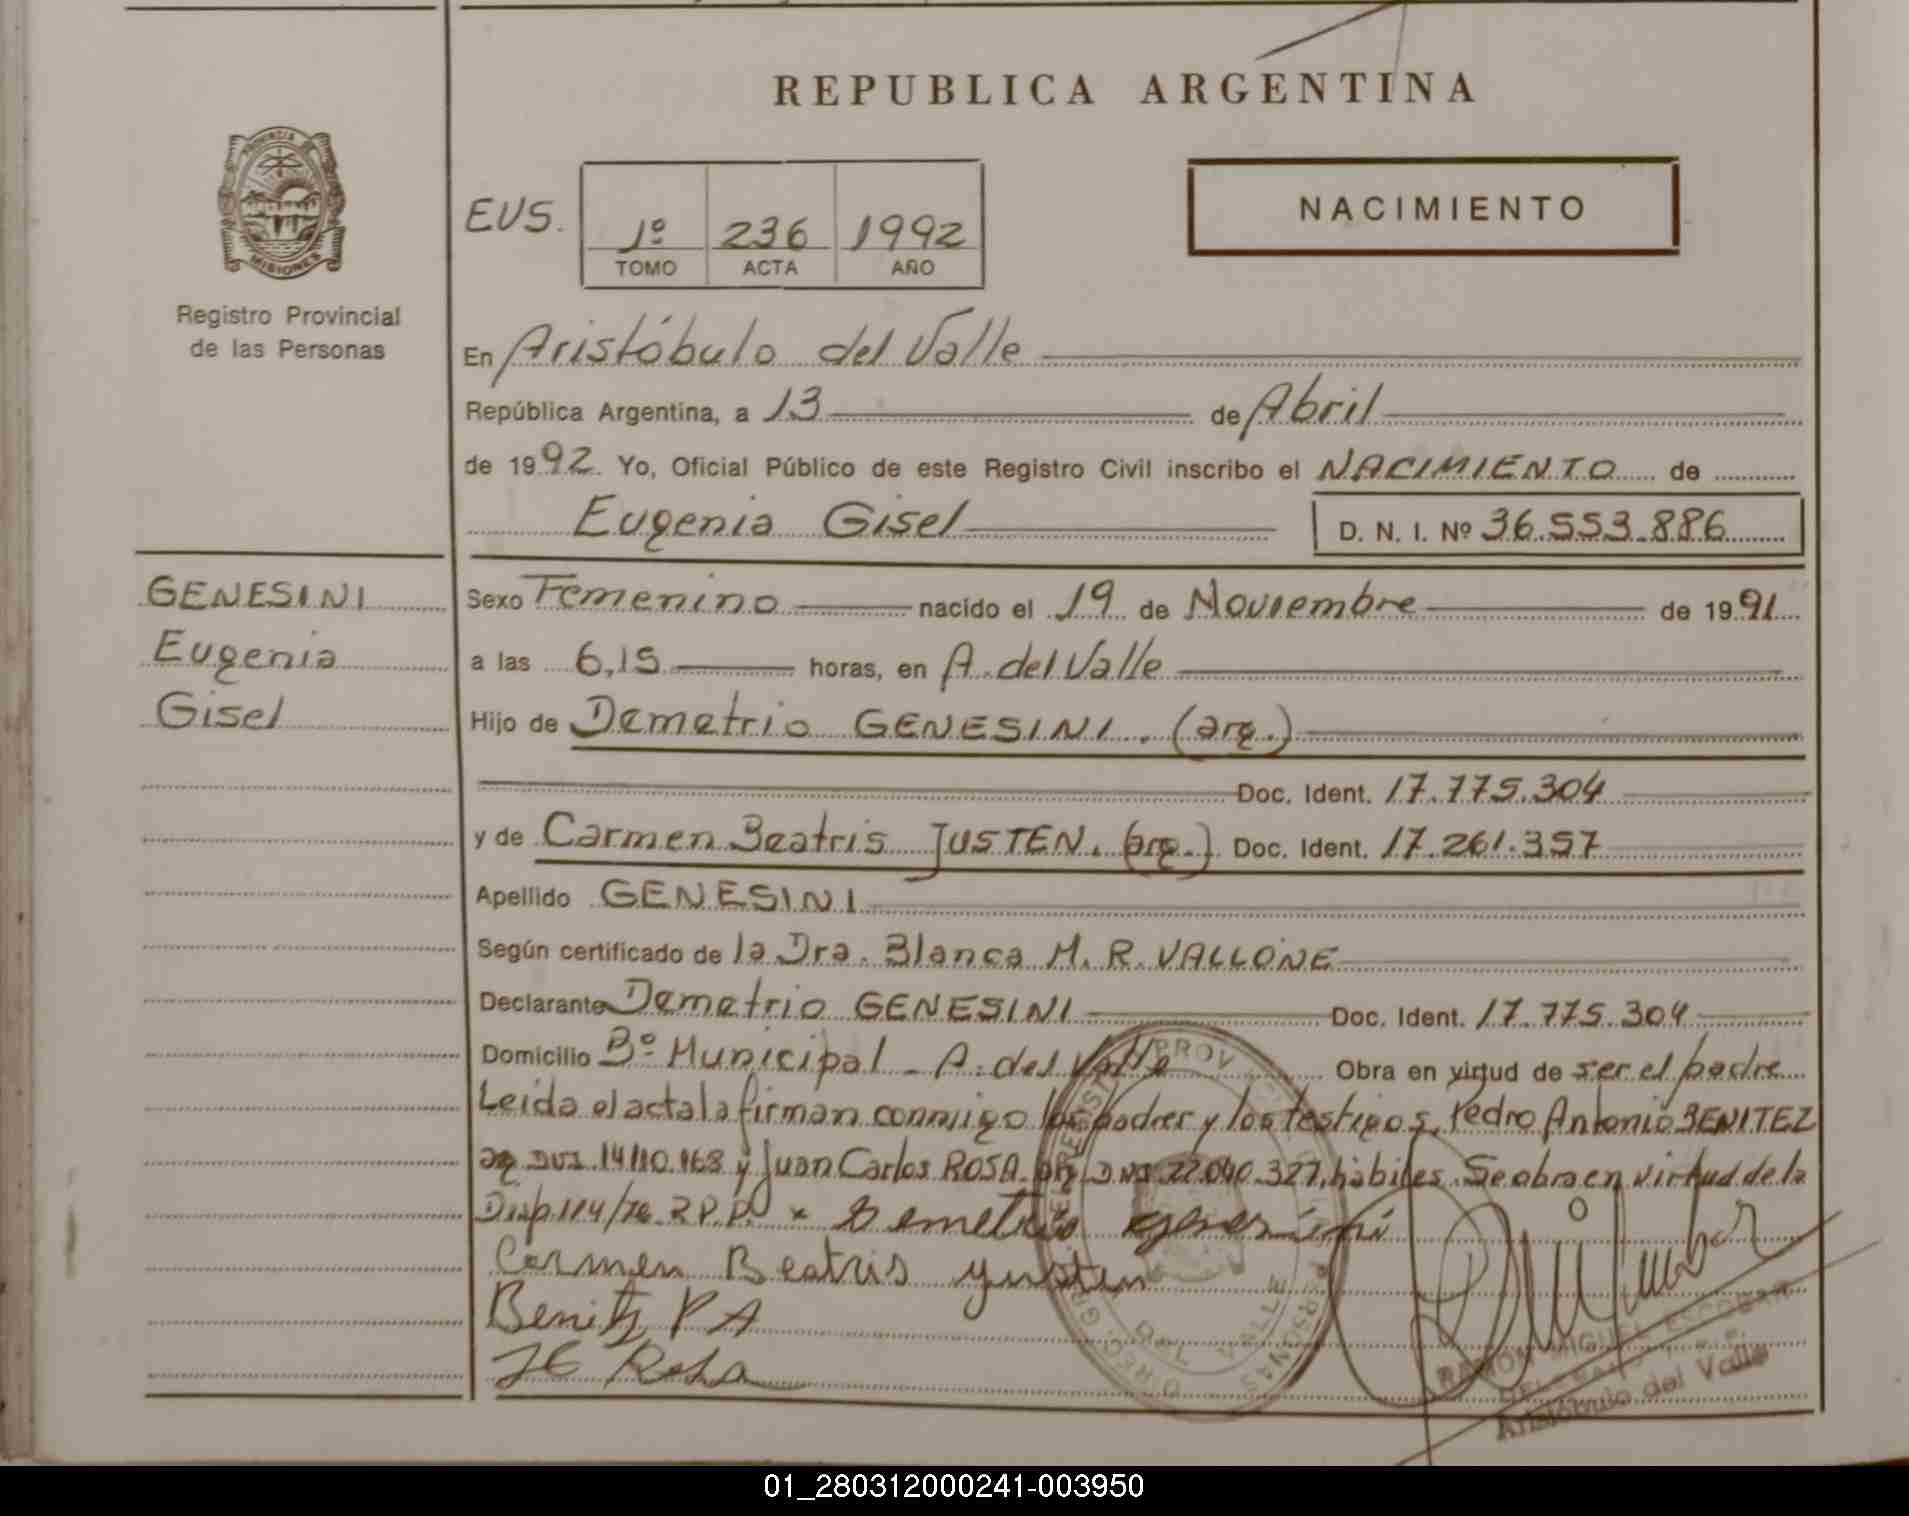 REPUBLICA ARGENTINA
PROVINCIA
MISIONES
Registro Provincial
de las Personas
EUS.
1º 236 1992
TOMO ACTA AÑO
NACIMIENTO
En Aristóbulo del Valle
República Argentina, a 13 de Abril
de 1992. Yo, Oficial Público de este Registro Civil inscribo el NACIMIENTO de
Eugenia Gisel D. N. I. Nº 36.553.886
GENESINI
Eugenia
Gisel
Sexo Femenino nacido el 19 de Noviembre de 1991
a las 6,15 horas, en A. del Valle
Hijo de Demetrio GENESINI. (arg.)
Doc. Ident. 17.775.304
y de Carmen Beatris JUSTEN. (arg.) Doc. Ident. 17.261.357
Apellido GENESINI
Según certificado de la Dra. Blanca M. R. VALLONE
Declarante Demetrio GENESINI Doc. Ident. 17.775.304
Domicilio Bº Municipal - A. del Valle Obra en virtud de ser el padre
Leida el acta la firman conmigo los padres y los testigos, Pedro Antonio BENITEZ
arg DNI 14.110.168 y Juan Carlos ROSA arg DNI 22.040.327, hábiles. Se obra en virtud de la
Disp 114/76 R.P.P. x Demetrio genesini
Carmen Beatris yusten
Benitz P A
JC Rosa
RAMON MIGUEL ESCOBAR
Aristóbulo del Valle
01_280312000241-003950